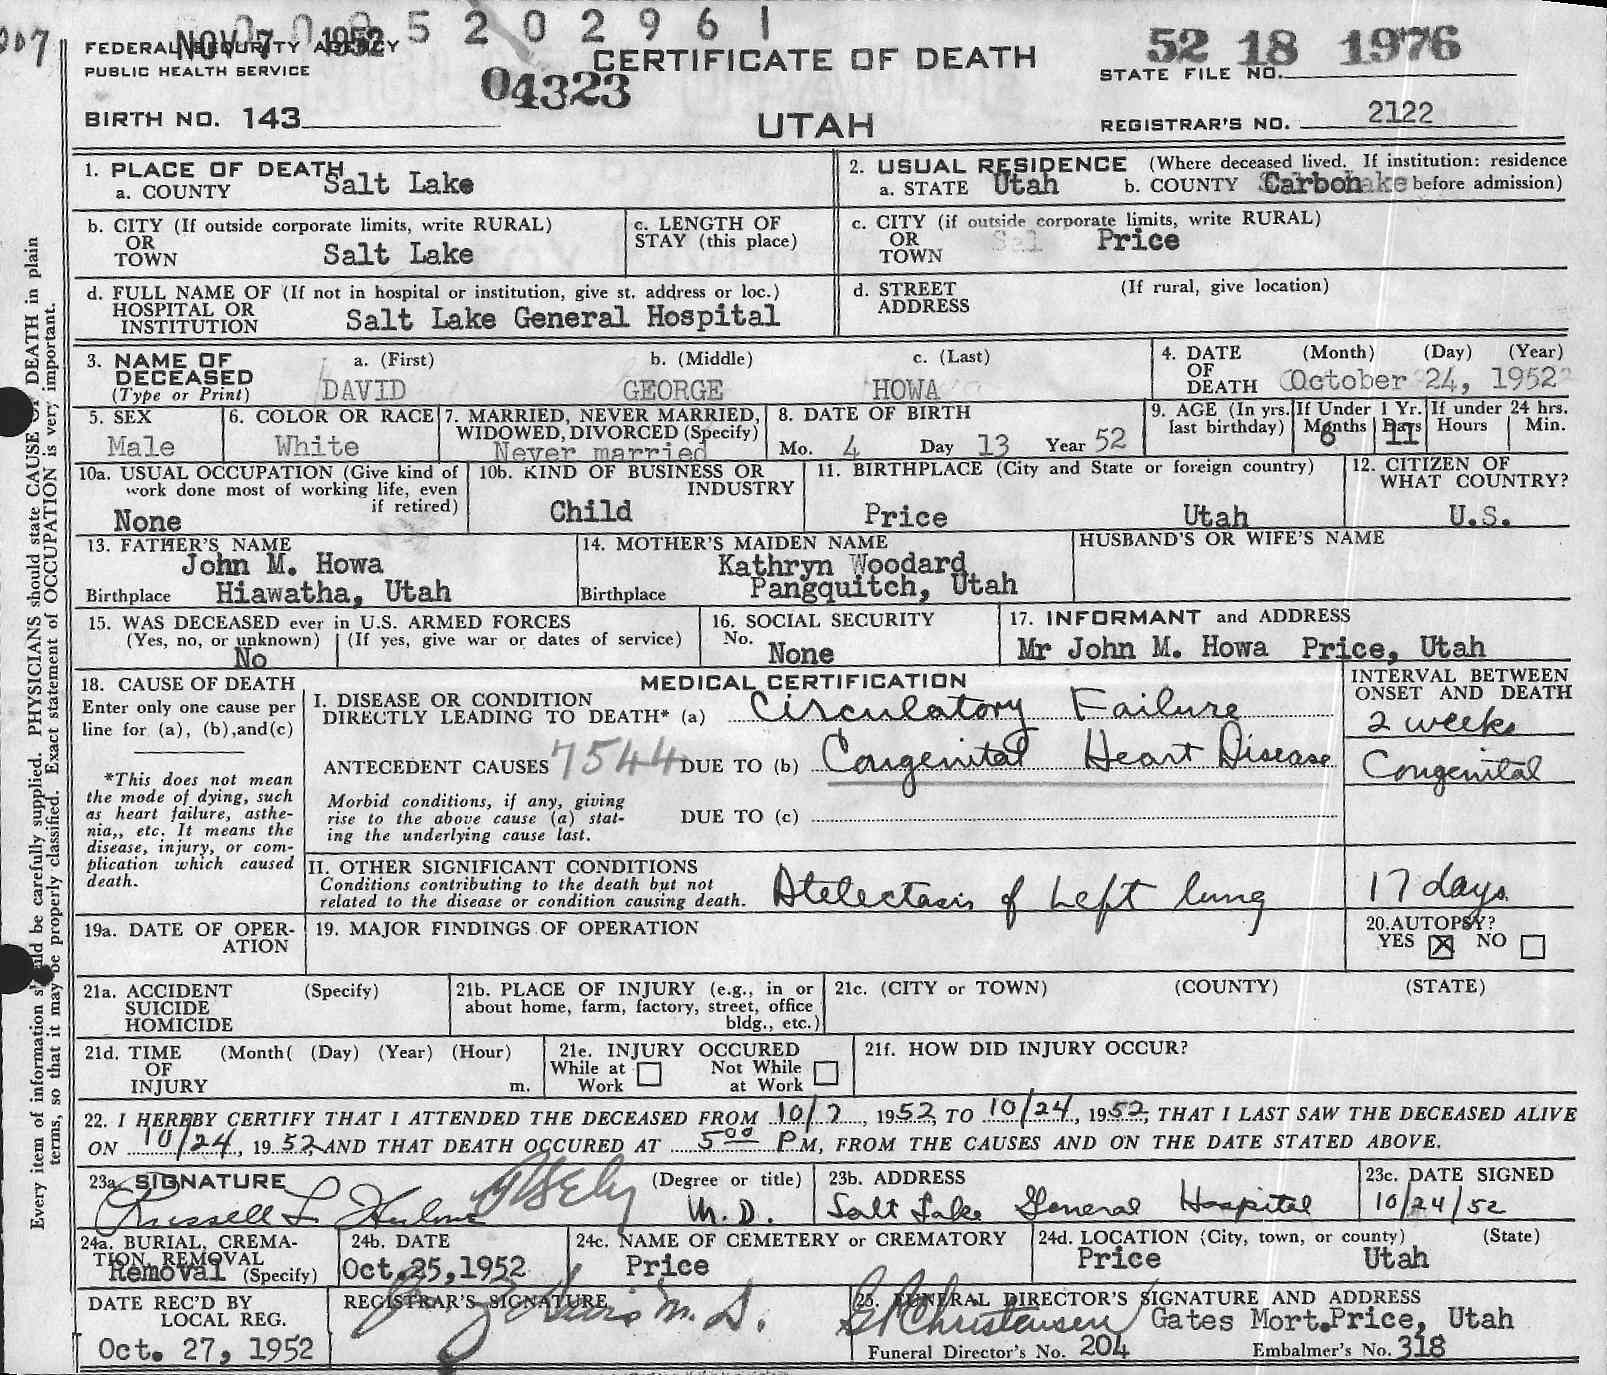 007
NOV 7 1952
5202961
FEDERAL SECURITY AGENCY
PUBLIC HEALTH SERVICE
04323
CERTIFICATE OF DEATH
52 18 1976
STATE FILE NO.
BIRTH NO. 143
UTAH
REGISTRAR'S NO. 2122
1. PLACE OF DEATH
a. COUNTY Salt Lake
2. USUAL RESIDENCE (Where deceased lived. If institution: residence
a. STATE Utah b. COUNTY Carbon before admission)
b. CITY (If outside corporate limits, write RURAL)
OR
TOWN Salt Lake
c. LENGTH OF
STAY (this place)
c. CITY (if outside corporate limits, write RURAL)
OR
TOWN Price
d. FULL NAME OF (If not in hospital or institution, give st. address or loc.)
HOSPITAL OR
INSTITUTION Salt Lake General Hospital
d. STREET (If rural, give location)
ADDRESS
3. NAME OF a. (First) b. (Middle) c. (Last)
DECEASED
(Type or Print) DAVID GEORGE HOWA
4. DATE (Month) (Day) (Year)
OF
DEATH October 24, 1952
5. SEX
Male
6. COLOR OR RACE
White
7. MARRIED, NEVER MARRIED,
WIDOWED, DIVORCED (Specify)
Never married
8. DATE OF BIRTH
Mo. 4 Day 13 Year 52
9. AGE (In yrs. last birthday)
If Under 1 Yr.
Months 6 Days 11
If under 24 hrs.
Hours Min.
10a. USUAL OCCUPATION (Give kind of
work done most of working life, even
if retired)
None
10b. KIND OF BUSINESS OR
INDUSTRY
Child
11. BIRTHPLACE (City and State or foreign country)
Price Utah
12. CITIZEN OF
WHAT COUNTRY?
U.S.
13. FATHER'S NAME
John M. Howa
Birthplace Hiawatha, Utah
14. MOTHER'S MAIDEN NAME
Kathryn Woodard
Birthplace Pangquitch, Utah
HUSBAND'S OR WIFE'S NAME
15. WAS DECEASED ever in U.S. ARMED FORCES
(Yes, no, or unknown) (If yes, give war or dates of service)
No
16. SOCIAL SECURITY
No. None
17. INFORMANT and ADDRESS
Mr John M. Howa Price, Utah
18. CAUSE OF DEATH
Enter only one cause per
line for (a), (b),and(c)
*This does not mean
the mode of dying, such
as heart failure, asthe-
nia,, etc. It means the
disease, injury, or com-
plication which caused
death.
MEDICAL CERTIFICATION
I. DISEASE OR CONDITION
DIRECTLY LEADING TO DEATH* (a) Circulatory Failure
ANTECEDENT CAUSES 7544 DUE TO (b) Congenital Heart Disease
Morbid conditions, if any, giving
rise to the above cause (a) stat-
ing the underlying cause last.
DUE TO (c)
INTERVAL BETWEEN
ONSET AND DEATH
2 weeks
Congenital
II. OTHER SIGNIFICANT CONDITIONS
Conditions contributing to the death but not
related to the disease or condition causing death.
Atelectasis of Left lung
17 days
19a. DATE OF OPER-
ATION
19. MAJOR FINDINGS OF OPERATION
20.AUTOPSY?
YES X NO
21a. ACCIDENT (Specify)
SUICIDE
HOMICIDE
21b. PLACE OF INJURY (e.g., in or
about home, farm, factory, street, office
bldg., etc.)
21c. (CITY or TOWN) (COUNTY) (STATE)
21d. TIME (Month( (Day) (Year) (Hour)
OF
INJURY m.
21e. INJURY OCCURED
While at Work Not While at Work
21f. HOW DID INJURY OCCUR?
22. I HEREBY CERTIFY THAT I ATTENDED THE DECEASED FROM 10/7, 1952, TO 10/24, 1952, THAT I LAST SAW THE DECEASED ALIVE
ON 10/24, 1952, AND THAT DEATH OCCURED AT 5:00 PM, FROM THE CAUSES AND ON THE DATE STATED ABOVE.
23a. SIGNATURE (Degree or title)
Russell L. M.D.
23b. ADDRESS
Salt Lake General Hospital
23c. DATE SIGNED
10/24/52
24a. BURIAL, CREMA-
TION, REMOVAL
Removal (Specify)
24b. DATE
Oct.25,1952
24c. NAME OF CEMETERY or CREMATORY
Price
24d. LOCATION (City, town, or county) (State)
Price Utah
DATE REC'D BY
LOCAL REG.
Oct. 27, 1952
REGISTRAR'S SIGNATURE
M.D.
25. FUNERAL DIRECTOR'S SIGNATURE AND ADDRESS
Christensen Gates Mort.Price, Utah
Funeral Director's No. 204 Embalmer's No. 318
Every item of information should be carefully supplied. PHYSICIANS should state CAUSE OF DEATH in plain
terms, so that it may be properly classified. Exact statement of OCCUPATION is very important.